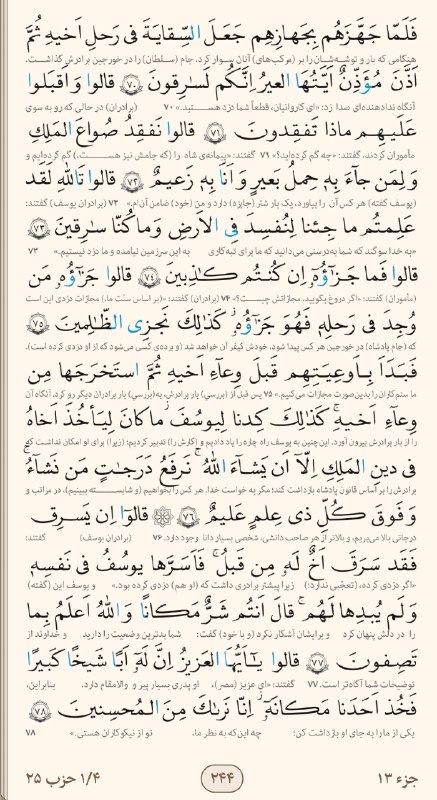 فَلَمّا جَهَّزَهُم بِجَهازِهِم جَعَلَ السِّقايَةَ فى رَحلِ اَخيهِ ثُمَّ
هنگامی که بار و توشه‌شان را بر (مرکب‌های) آنان سوار کرد، جام (سلطان) را در خورجین برادرش گذاشت.
اَذَّنَ مُؤَذِّنٌ اَيَّتُهَا العيرُ اِنَّكُم لَسارِقونَ ﴿٧٠﴾ قالوا وَ اَقبَلوا
آنگاه نداد‌هنده‌ای صدا زد: «ای کاروانیان، قطعاً شما دزد هستید.» ۷۰ (برادران) در حالی که رو به سوی
عَلَيهِم ماذا تَفقِدونَ ﴿٧١﴾ قالوا نَفقِدُ صُواعَ المَلِكِ
مأموران کردند، گفتند: «چه گم کرده‌اید؟» ۷۱ گفتند: «پیمانه‌ی شاه را (که جامش نیز هست،) گم کرده‌ایم و
وَ لِمَن جآءَ بِهٖ حِملُ بَعيرٍ وَ اَنَا بِهٖ زَعيمٌ ﴿٧٢﴾ قالوا تَاللّٰهِ لَقَد
(یوسف گفته) هر کس آن را بیاورد، یک بار شتر (جایزه) دارد و من (خود) ضامن آن‌ام.» ۷۲ (برادران یوسف) گفتند:
عَلِمتُم ما جِئنا لِنُفسِدَ فِى الاَرضِ وَ ما كُنّا سٰرِقينَ ﴿٧٣﴾
«به خدا سوگند که شما به‌درستی می‌دانید که ما برای تبه‌کاری به این سرزمین نیامده و ما دزد نیستیم.» ۷۳
قالوا فَما جَزٰٓؤُهۥٓ اِن كُنتُم كٰذِبينَ ﴿٧٤﴾ قالوا جَزٰٓؤُهۥ مَن
(مأموران) گفتند: «اگر دروغ بگویید، مجازاتش چیست؟» ۷۴ (برادران) گفتند: «(بر اساس سنّت ما،) مجازات دزدی این است
وُجِدَ فى رَحلِهٖ فَهُوَ جَزٰٓؤُهۥ كَذٰلِكَ نَجزِى الظّٰلِمينَ ﴿٧٥﴾
(که جام پادشاه) در خورجین هر کس پیدا شود، خودش کیفر آن خواهد شد (و برده‌ی کسی می‌شود که از او دزدی کرده است).
فَبَدَاَ بِاَوعِيَتِهِم قَبلَ وِعآءِ اَخيهِ ثُمَّ استَخرَجَها مِن
ما ستم‌کاران را بدین‌صورت مجازات می‌کنیم.» ۷۵ پس قبل از (بررسی) بار برادرش، به(بررسی) بار برادران دیگر رو کرد. آنگاه آن
وِعآءِ اَخيهِ كَذٰلِكَ كِدنا لِيوسُفَ ما كانَ لِيَأخُذَ اَخاهُ
را از بار برادرش بیرون آورد. این‌چنین به یوسف راه چاره را یاد دادیم و (کارش را) تدبیر کردیم؛ (زیرا) برای او امکان نداشت که
فى دينِ المَلِكِ اِلّآ اَن يَشآءَ اللّٰهُ نَرفَعُ دَرَجٰتٍ مَن نَشآءُ
برادرش را بر اساس قانون پادشاه بازداشت کند؛ مگر به خواست خدا. هر کس را بخواهیم (و شایسته ببینیم)، در مراتب و
وَ فَوقَ كُلِّ ذى عِلمٍ عَليمٌ ﴿٧٦﴾ قالوٓا اِن يَسرِق
درجاتی بالا می‌بریم، و بالاتر از هر صاحب دانشی، شخصی بسیار دانا وجود دارد. ۷۶ (برادران یوسف) گفتند:
فَقَد سَرَقَ اَخٌ لَهۥ مِن قَبلُ فَاَسَرَّها يوسُفُ فى نَفسِهٖ
«اگر دزدی کرده، (تعجّبی ندارد؛) زیرا پیشتر برادری داشت که (او هم) دزدی کرده بود.» و یوسف این (گفته)
وَ لَم يُبدِها لَهُم قالَ اَنتُم شَرٌّ مَكانًا وَ اللّٰهُ اَعلَمُ بِما
را در دلش پنهان کرد و برایشان آشکار نکرد (و با خود) گفت: شما بدترین وضعیت را دارید و خداوند از
تَصِفونَ ﴿٧٧﴾ قالوا يٰٓاَيُّهَا العَزيزُ اِنَّ لَهۥٓ اَبًا شَيخًا كَبيرًا
توضیحات شما آگاه‌تر است. ۷۷ گفتند: «ای عزیز (مصر)، او پدری بسیار پیر و والامقام دارد. بنابراین،
فَخُذ اَحَدَنا مَكانَهۥٓ اِنّا نَرٰىكَ مِنَ المُحسِنينَ ﴿٧٨﴾
یکی از ما را به جای او بازداشت کن؛ چه این‌که به نظر ما، تو از نیکوکاران هستی.» ۷۸
جزء ۱۳ ۲۴۴ ۱/۴ حزب ۲۵